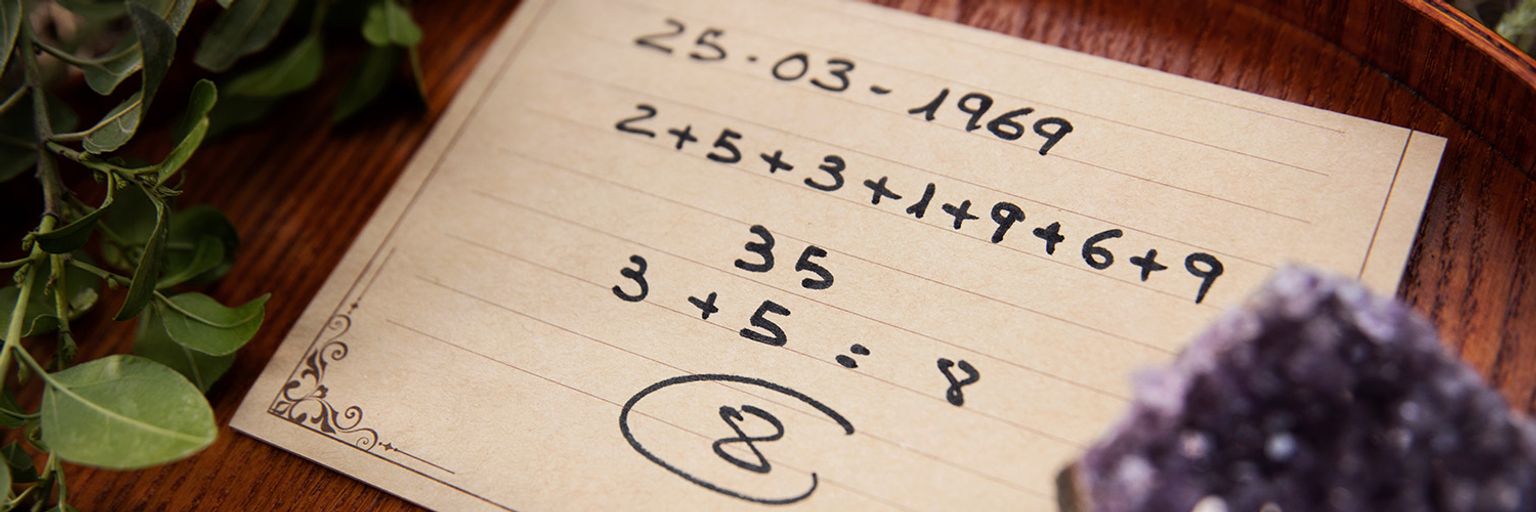 25·03-1969
2+5+3+1+9+6+9
35
3+5= 8
8